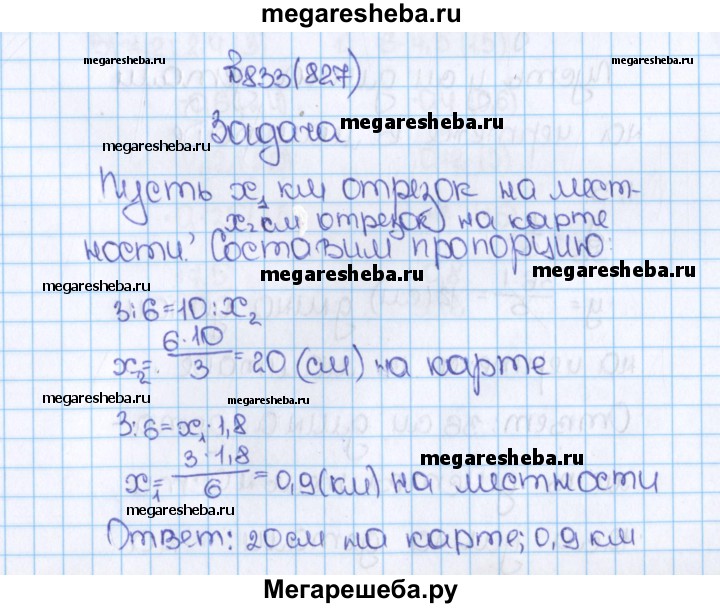 megaresheba.ru
megaresheba.ru megaresheba.ru
в833(827)
megaresheba.ru Задача megaresheba.ru
Пусть x₁ км отрезок на мест-
x₂ см отрезок на карте
ности. Составим пропорцию:
megaresheba.ru megaresheba.ru
3:6=10:x₂
x₂= 6·10/3 =20 (см) на карте
megaresheba.ru
3:6=x₁:1,8
megaresheba.ru
x₁= 3·1,8/6 =0,9(км) на местности
megaresheba.ru
Ответ: 20 см на карте; 0,9 км
megaresheba.ru megaresheba.ru
Мегарешеба.ру